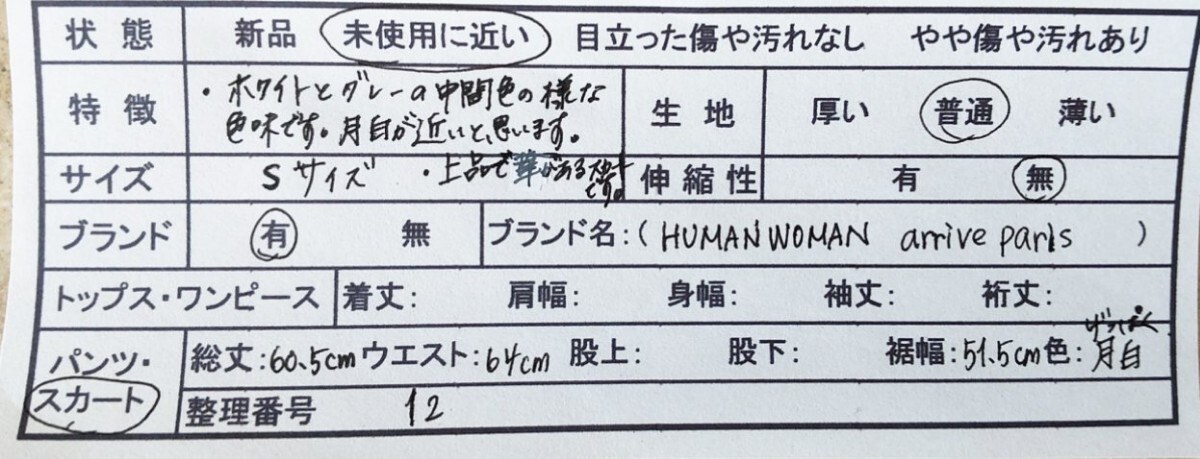 状態 新品 未使用に近い 目立った傷や汚れなし やや傷や汚れあり
特徴 ・ホワイトとグレーの中間色の様な
色味です。月白が近いと、思います。
生地 厚い 普通 薄い
サイズ Sサイズ ・上品で華があるスカート
です。
伸縮性 有 無
ブランド 有 無 ブランド名:(HUMAN WOMAN arrive paris )
トップス・ワンピース 着丈: 肩幅: 身幅: 袖丈: 裄丈:
げっぱく
パンツ・ 総丈:60.5cm ウエスト:64cm 股上: 股下: 裾幅:51.5cm 色:月白
スカート 整理番号 12